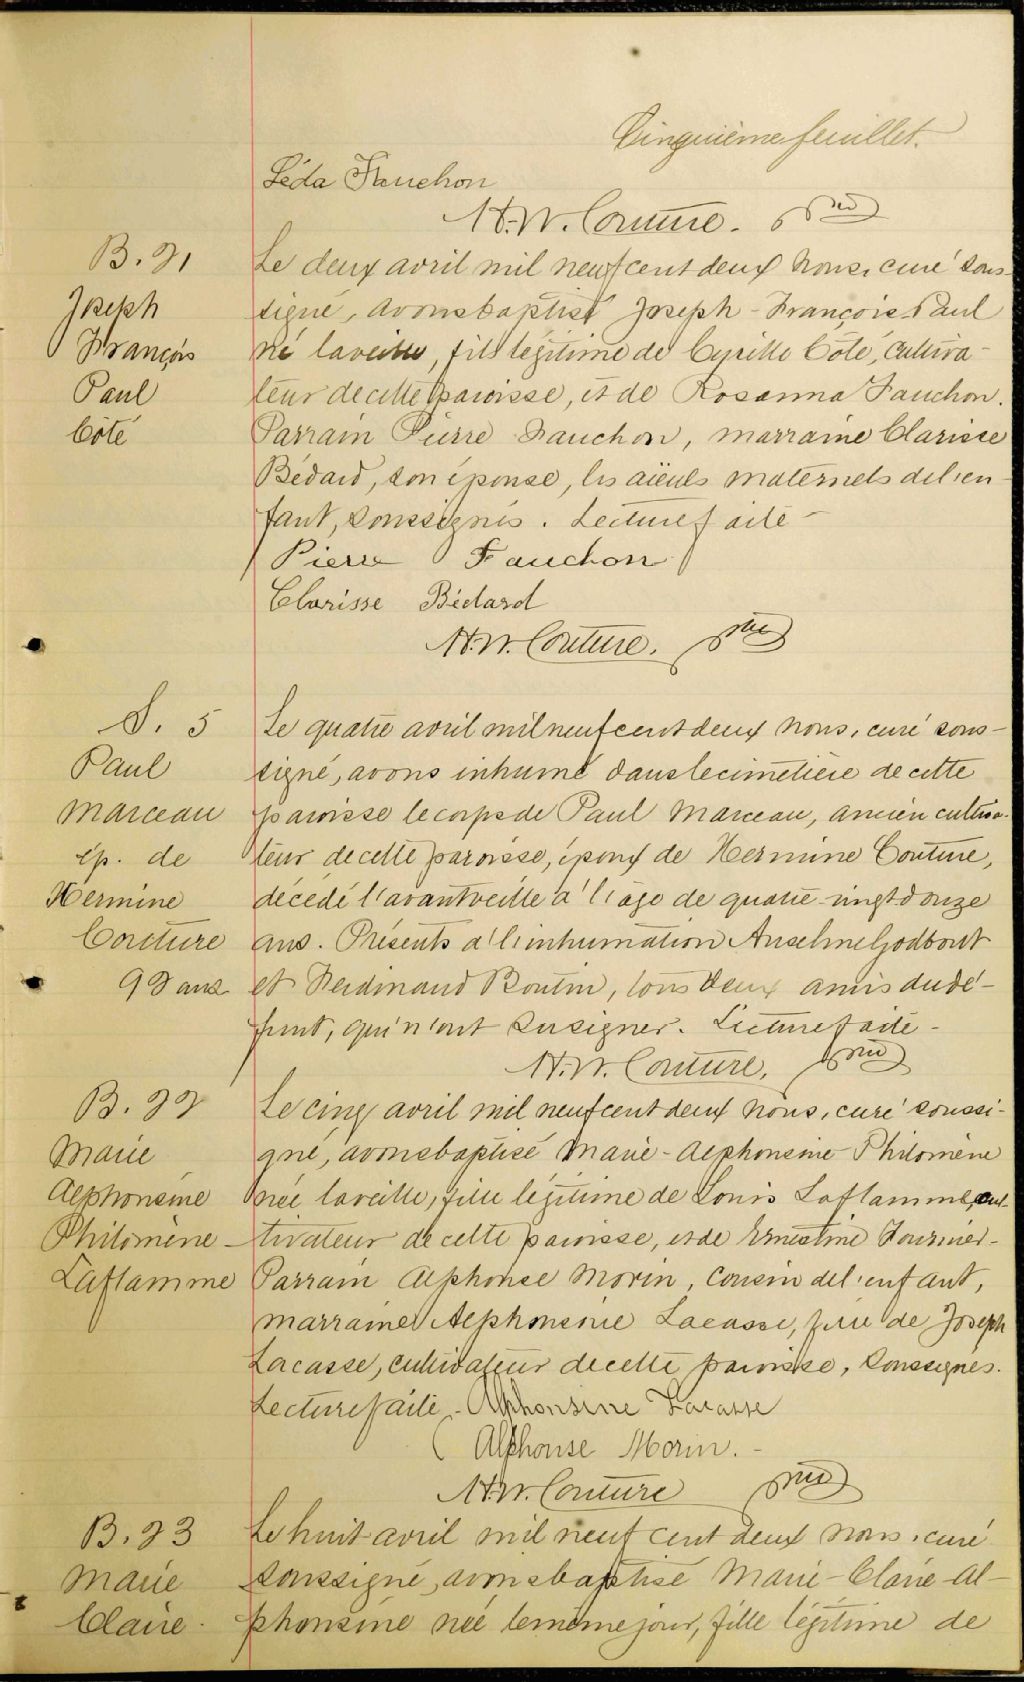 Cinquième feuillet.
Léda Fauchon
H.-W. Couture. ptre
B. 21
Joseph
François
Paul
Côté
Le deux avril mil neuf cent deux nous, curé sous-
signé, avons baptisé Joseph-François-Paul
né la veille, fils légitime de Cyrille Côté, cultiva-
teur de cette paroisse, et de Rosanna Fauchon.
Parrain Pierre Fauchon, marraine Clarisse
Bédard, son épouse, les aïeuls maternels de l'en-
fant, soussignés. Lecture faite-
Pierre Fauchon
Clarisse Bédard
H.W. Couture. ptre
S. 5
Paul
Marceau
ép. de
Hermine
Couture
92 ans
Le quatre avril mil neuf cent deux nous, curé sous-
signé, avons inhumé dans le cimetière de cette
paroisse le corps de Paul Marceau, ancien cultiva-
teur de cette paroisse, époux de Hermine Couture,
décédé l'avant veille à l'âge de quatre-vingt douze
ans. Présents à l'inhumation Anselme Godbout
et Ferdinand Boutin, tous deux amis du dé-
funt, qui n'ont su signer. Lecture faite-
H.W. Couture, ptre
B. 22
Marie
Alphonsine
Philomène-
Laflamme
Le cinq avril mil neuf cent deux nous, curé soussi-
gné, avons baptisé Marie-Alphonsine-Philomène
née la veille, fille légitime de Louis Laflamme, cul-
tivateur de cette paroisse, et de Ernestine Fournier-
Parrain Alphonse Morin, cousin de l'enfant,
marraine Alphonsine Lacasse, fille de Joseph
Lacasse, cultivateur de cette paroisse, soussignés.
Lecture faite- Alphonsine Lacasse
Alphonse Morin.-
H.W. Couture ptre
B. 23
Marie
Claire.
Le huit avril mil neuf cent deux nous, curé
soussigné, avons baptisé Marie-Claire-Al-
phonsine née le même jour, fille légitime de